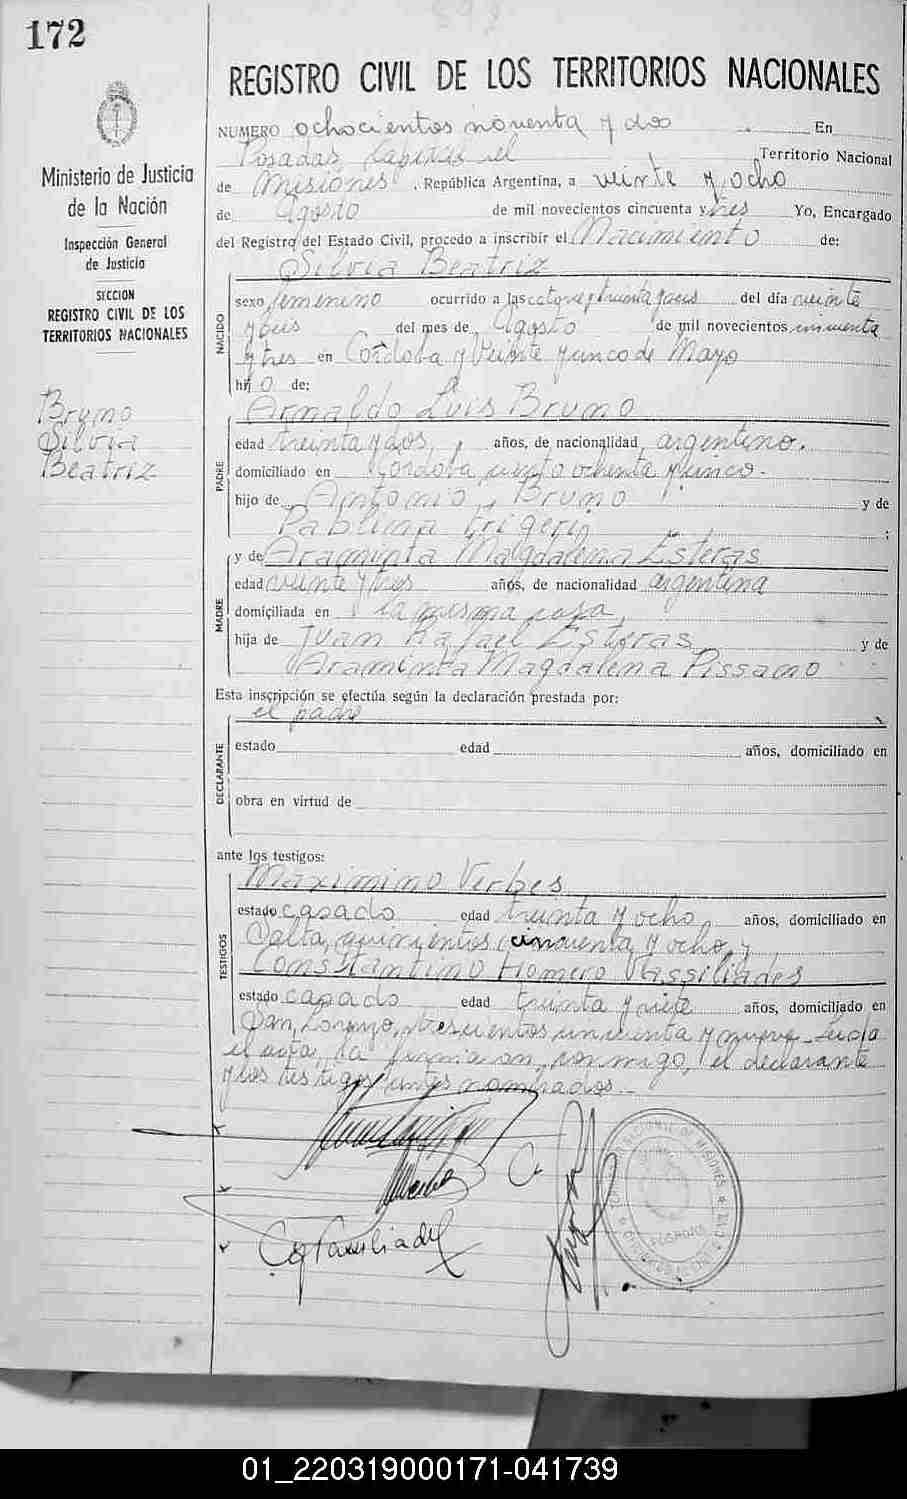 172
REGISTRO CIVIL DE LOS TERRITORIOS NACIONALES
Ministerio de Justicia
de la Nación
Inspección General
de Justicia
SECCION
REGISTRO CIVIL DE LOS
TERRITORIOS NACIONALES
Bruno
Silvia
Beatriz
NUMERO ochocientos noventa y dos En
Posadas, capital del Territorio Nacional
de Misiones, República Argentina, a veinte y ocho
de Agosto de mil novecientos cincuenta y tres Yo, Encargado
del Registro del Estado Civil, procedo a inscribir el Nacimiento de:
Silvia Beatriz
NACIDO
sexo femenino ocurrido a las catorce y treinta del día veinte
y seis del mes de Agosto de mil novecientos cincuenta
y tres en Córdoba y Veinte y cinco de Mayo
hij o de:
Arnaldo Luis Bruno
PADRE
edad treinta y dos, años, de nacionalidad argentino.
domiciliado en Córdoba ciento ochenta y cinco.
hijo de Antonio Bruno y de
y de Araminta Magdalena Esteras
MADRE
edad veinte y tres años, de nacionalidad argentina
domiciliada en la misma casa
hija de Juan Rafael Esteras y de
Araminta Magdalena Pissano
Esta inscripción se efectúa según la declaración prestada por:
el padre
DECLARANTE
estado edad años, domiciliado en
obra en virtud de
ante los testigos:
Maximino Verbes
TESTIGOS
estado casado edad treinta y ocho, años, domiciliado en
Salta, quinientos cincuenta y ocho, y
Constantino Homero Vassiliades
estado casado edad treinta y siete años, domiciliado en
San Lorenzo, trescientos cincuenta y nueve. Leida
el acta, la firmaron conmigo, el declarante
y los testigos antes nombrados.
01_220319000171-041739